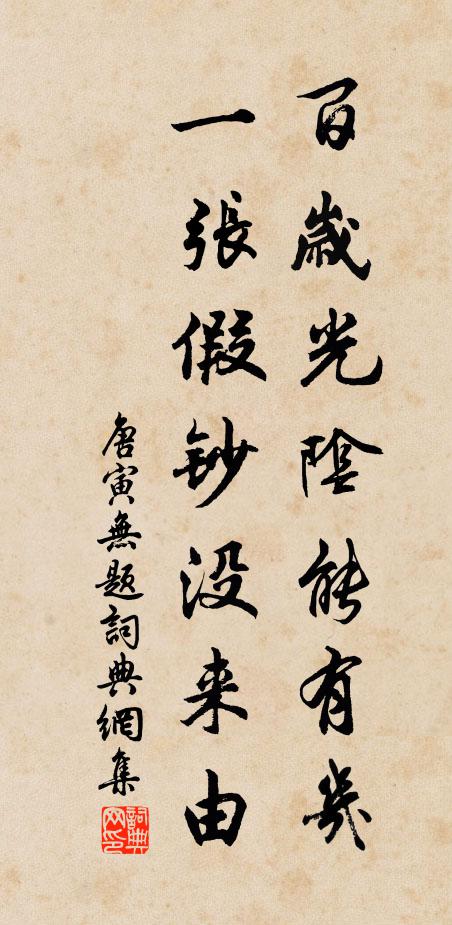 百歲光陰能有幾
一張假鈔没来由
唐寅無題詞典網集
詞典网印